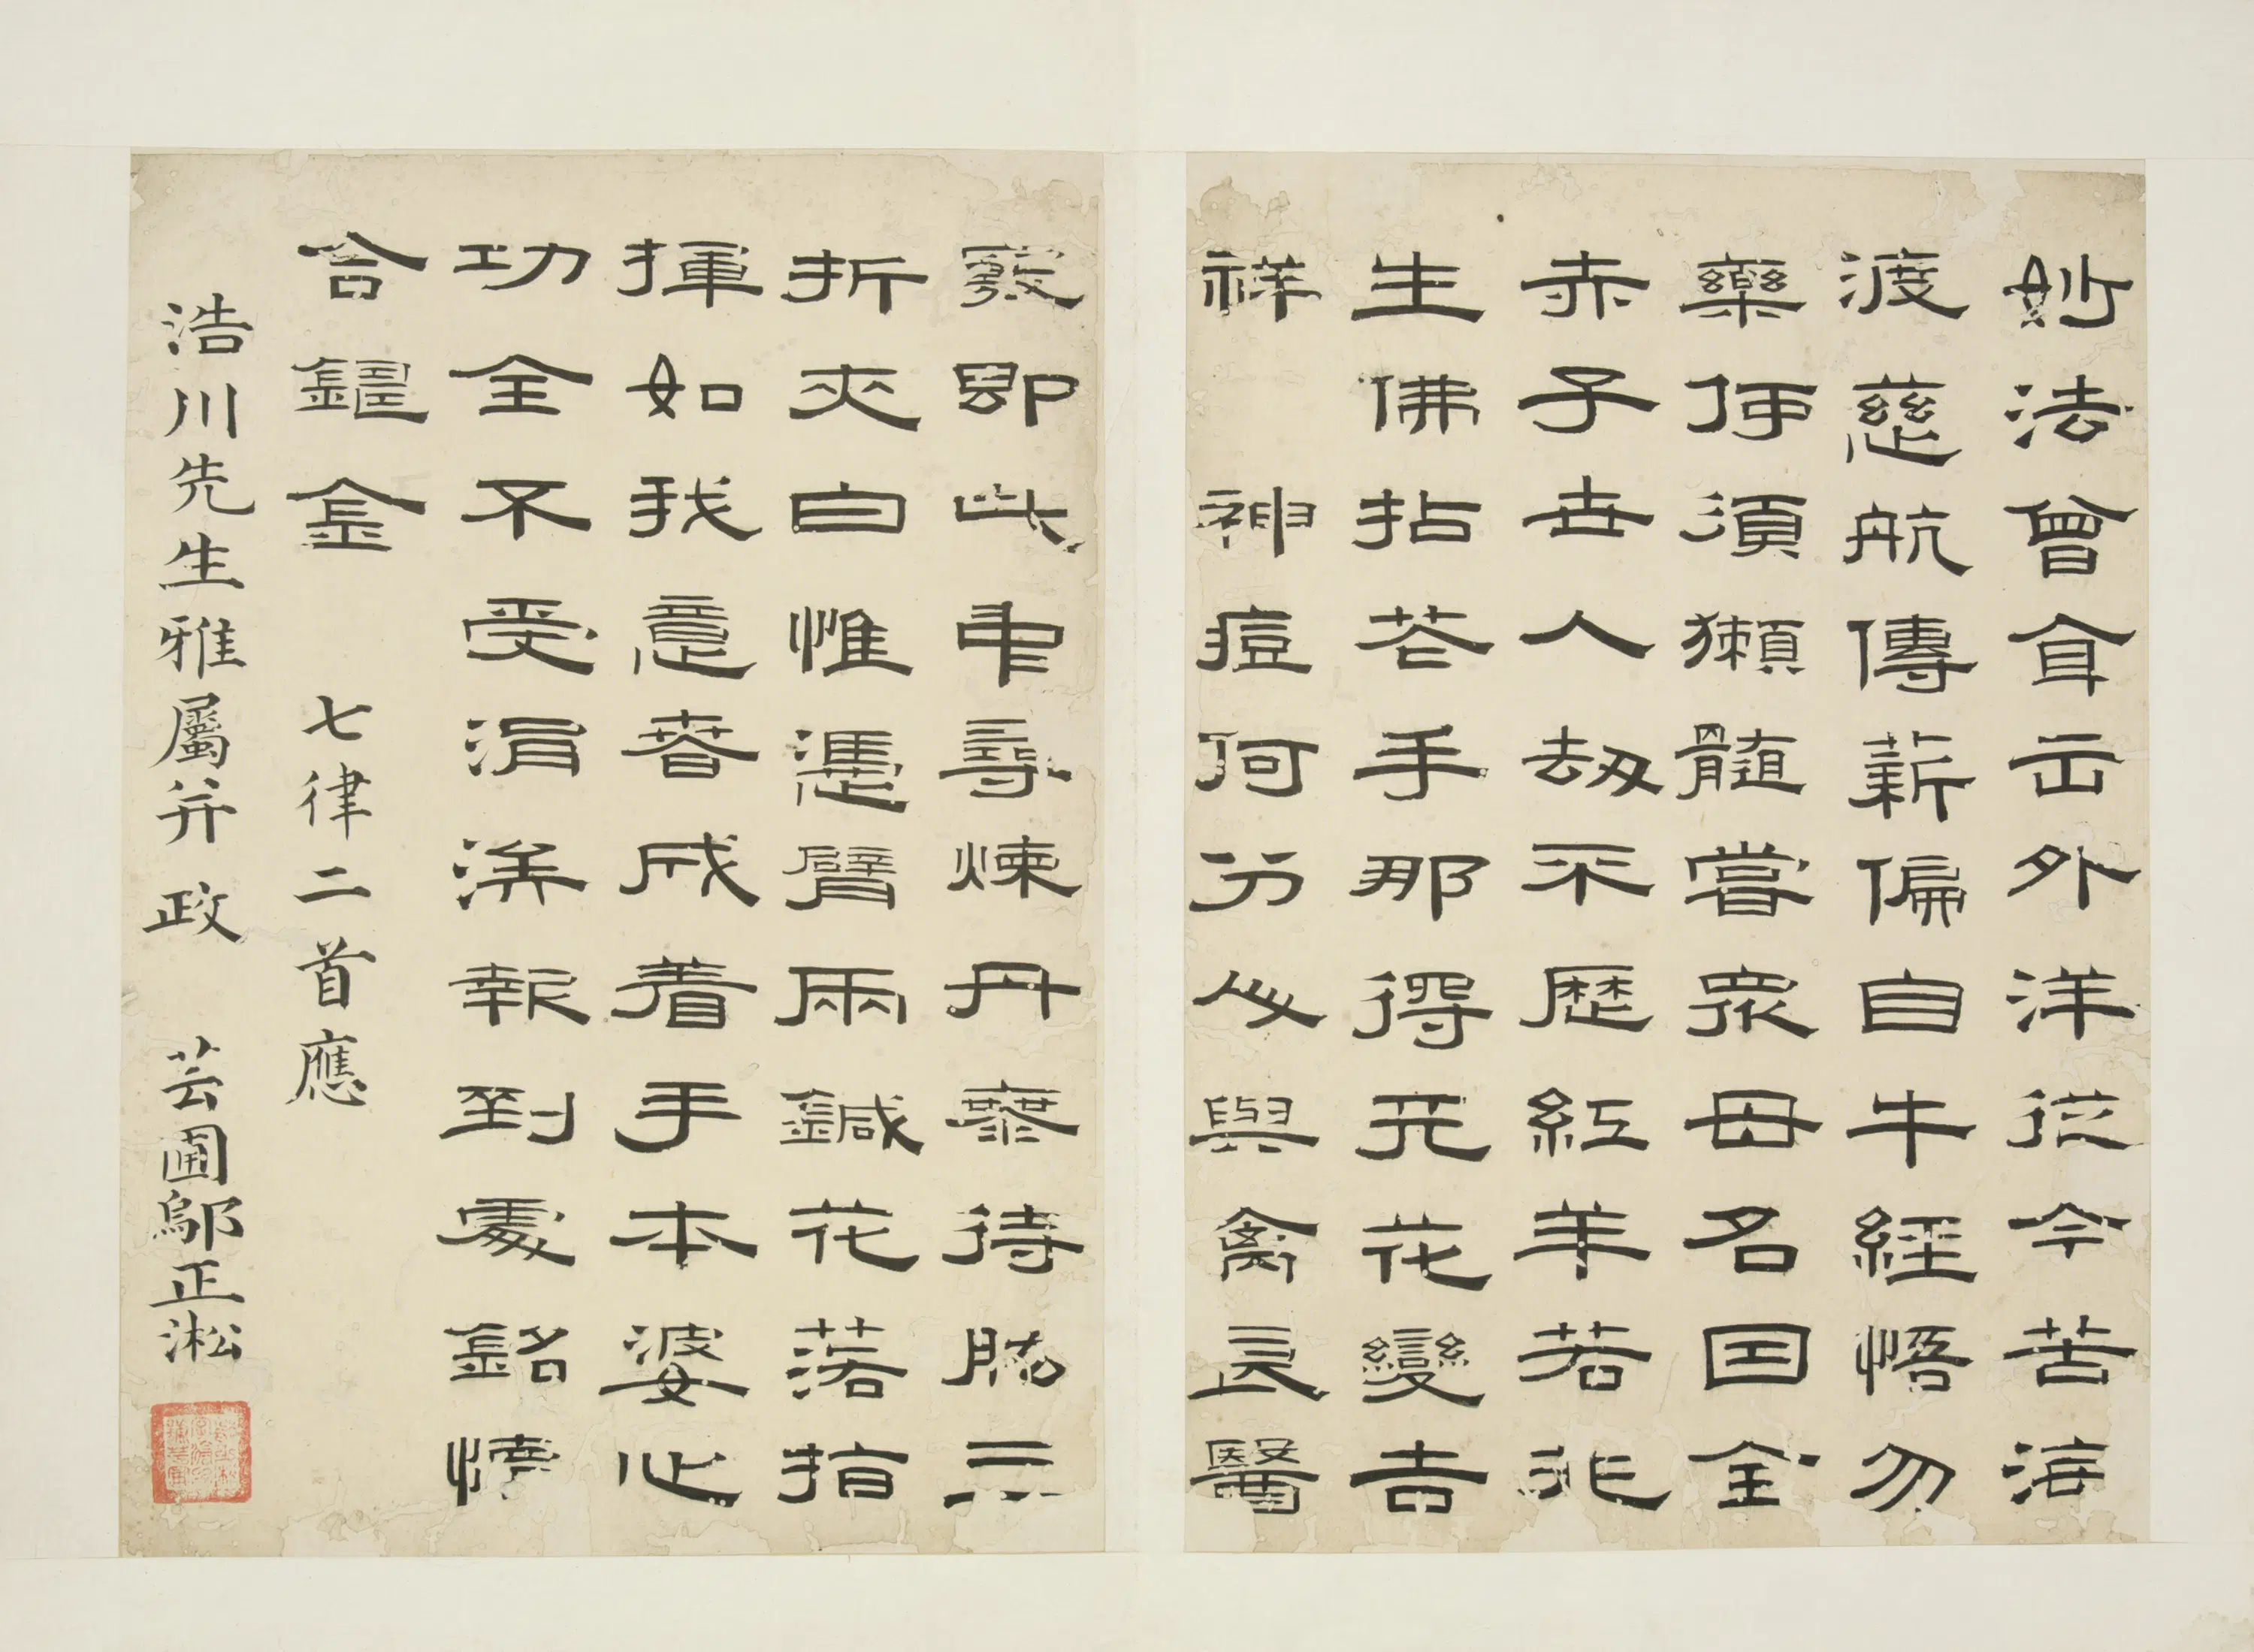 妙法曾出外洋從今苦海
渡慈航傳薪偏自牛經悟勿
藥何須獺髓嘗衆母名因全
赤子世人劫不歷紅羊若非
生佛拈花手那得天花變吉
祥　神痘何分與禽良醫
即此中尋煉丹待肱三
折夾白惟憑臂兩鍼花落指
揮如我意春成着手本婆心
功全不受涓涘報到處銘情
合鑄金　七律二首應
浩川先生雅屬并政　芸圃鄔正淞